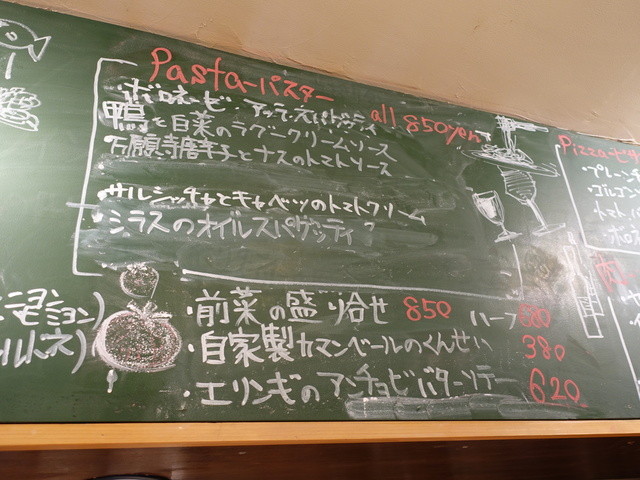 Pasta-パスター
all 850yen
・ボロネーゼ アッラ・スパゲッティ
・鴨と白菜のラグークリームソース
・万願寺唐辛子とナスのトマトソース
・サルシッチャとキャベツのトマトクリーム
・シラスのオイルスパゲッティ
・前菜の盛り合せ 850 ハーフ
・自家製カマンベールのくんせい 380
・エリンギのアンチョビバターソテー 620
Pizza-ピザ
・プレーン
・ゴルゴン
トマト
・ボロ